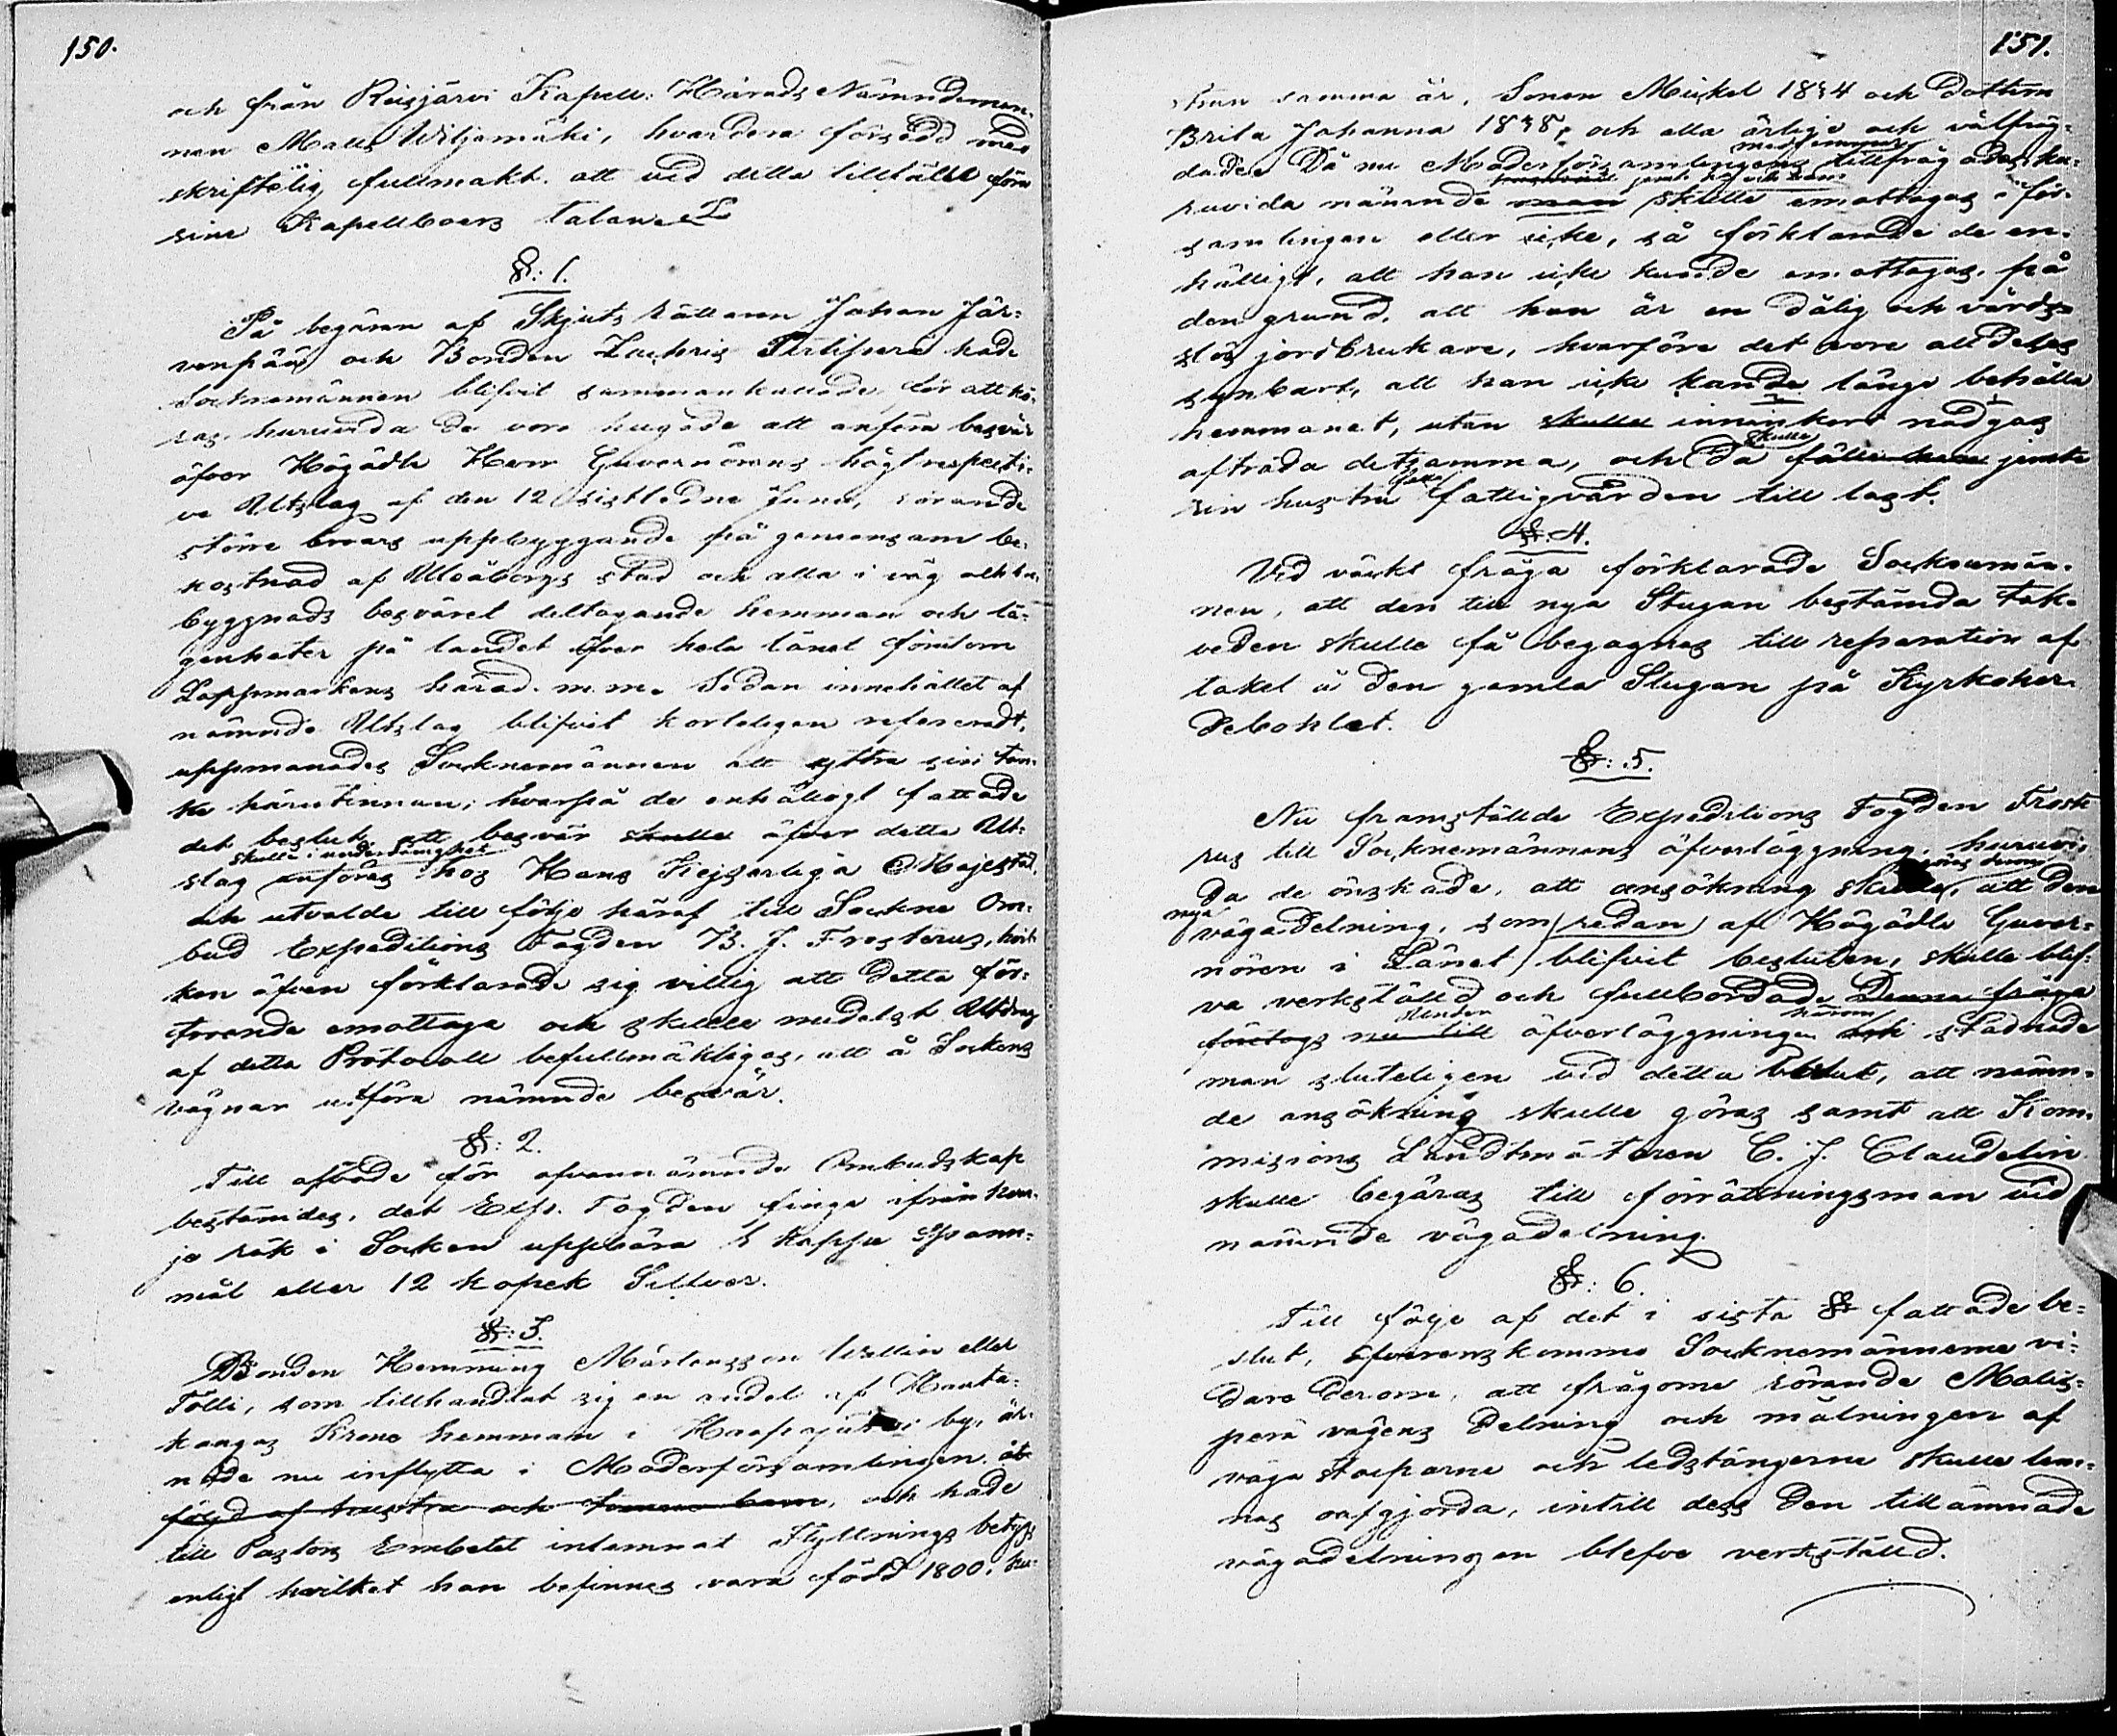 150.
och från Reisjärvi Kapell: Härads Nämndeman-
nen Matts Wiljamäki, hvardera försedd med
skriftelig fullmakt att vid detta tillfälle föra
sine Kapellboers talan.
§: 1.
På begäran af Skjuts rättaren Johan Jär-
venpää och Bonden Zachris Pirtiperä hade
Socknemännen blifvit sammankallade för att hö-
ras huruvida de vore hugade att anföra besvär
öfver Högädle Herr Guvernörens högt respecti-
ve Utslag af den 12 sistledne Junii, rörande
större broars uppbyggande på gemensam be-
kostnad af Uleåborgs stad och alla i väg och bro
byggnads besväret deltagande hemman och lä-
genheter på landet öfver hela länet förutom
Lappmarkens härad m.m. Sedan innehållet af
nämnde Utslag blifvit korteligen refereradt,
uppmanades Socknemännen att yttra sin tan-
ke härutinnan; hvarpå de enhälligt fattade
det beslut, att besvär skulle öfver detta Ut-
skulle i underdånighet
slag anföras hos Hans Kejserliga Majestät,
och utvalde till följe häraf till Sockne Om-
bud Expeditions Fogden B. J. Frosterus, hvil-
ken äfven förklarade sig villig att detta för-
troende emottaga och skulle medelst Utdrag
af detta Protocoll befullmäktigas, att å Sockens
vägnar utföra nämnde besvär.
§: 2.
Till arfvode för ofvannämnde Ombudskap
bestämdes, det Exp. Fogden finge ifrån hvar-
je rök i Socken uppbära 3 kappe Spann-
mål eller 12 kopek Silfver.
§: 3.
Bonden Hemming Mårtensson Wallin eller
Tölli, som tillhandlat sig en andel af Hauta-
kangas Krono hemman i Haapajärvi by, är-
nade nu inflytta i Moderförsamlingen åt-
följd af hustru och tvenne barn, och hade
till Pastors Embetet inlemnat Flyttnings betyg,
enligt hvilket han befinnes vara född 1800, hu-
151.
strun samma år, Sonen Mickel 1834 och dottren
Brita Johanna 1838, och alla ärlige och välfräg-
dade. Då nu Moderförsamlingens medlemmar tillfrågades hu-
ruvida nämnde man skulle emottagas i för-
samlingen eller icke, så förklarade de en-
hälligt, att han icke kunde emottagas, på
den grund, att han är en dålig och vårds-
lös jordbrukare, hvarföre det vore alldeles
synbart, att han icke kunde länge behålla
hemmanet, utan skulle inom kort nödgas
skulle
afträda detsamma, och då falla han jemte
falla
sin hustru fattigvården till last.
§: 4.
Vid väckt fråga förklarade Socknemän-
nen, att den till nya Stugan bestämda tak-
veden skulle få begagnas till reparation af
taket å den gamla Stugan på Kyrkoher-
debohlet.
§: 5.
Nu framställde Expeditions Fogden Froste-
rus till Socknemännens öfverläggning, huruvi-
göras derom
da de önskade, att ansökning skulle, att den
nya
vägadelning, som redan af Högädle Guver-
nören i Länet blifvit besluten, skulle blif-
va verkställd och fullbordad. Denna fråga
härom
företogs nu till öfverläggningen och stadnade
man sluteligen vid detta beslut, att nämn-
de ansökning skulle göras samt att Kom-
missions Landtmätaren C. J. Claudelin
skulle begäras till förrättningsman vid
nämnde vägadelning.
§: 6.
Till följe af det i sista § fattade be-
slut, öfverenskommo Socknemännerne vi-
dare derom, att frågorne rörande Malis-
perä vägens delning och målningen af
väga stolparne och ledstängerne skulle lem-
nas oafgjorda, intill dess den tillämnade
vägadelningen blefve verkställd.